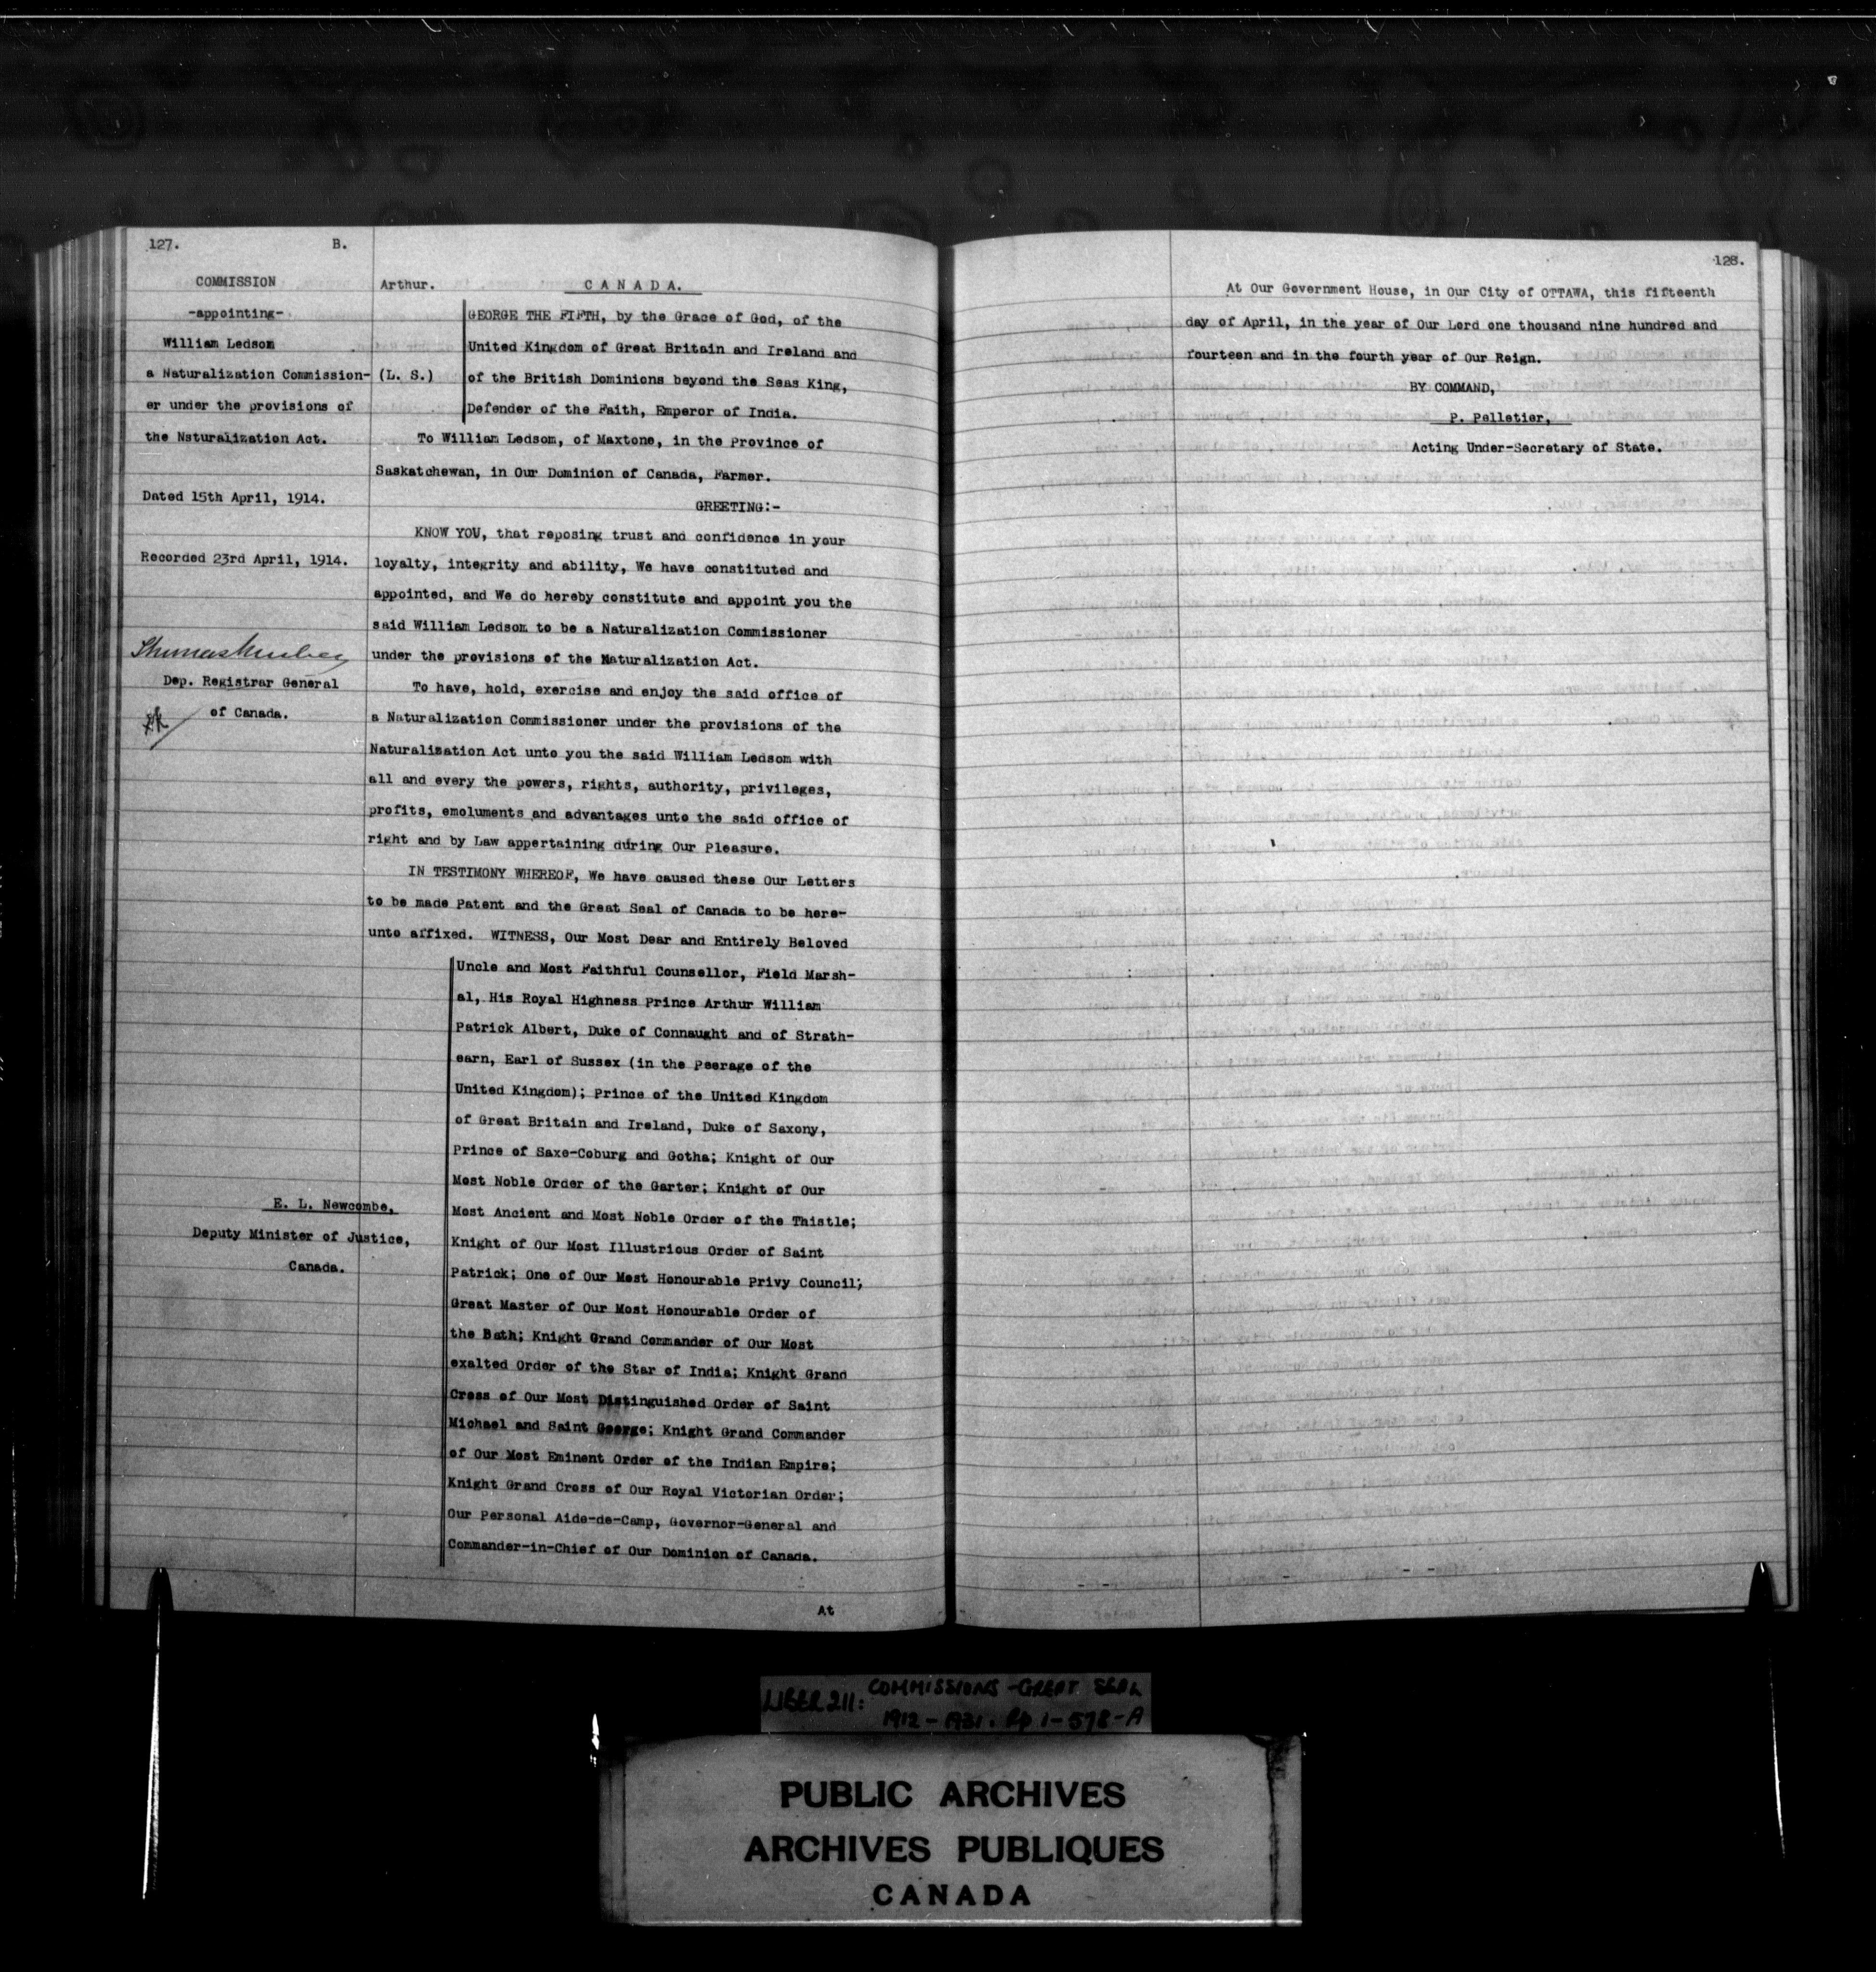 127.
B.
COMMISSION
-appointing-
William Ledsom
a Naturalization Commission-
er under the provisions of
the Naturalization Act.
Dated 15th April, 1914.
Recorded 23rd April, 1914.
Dep. Registrar General
of Canada.
E. L. Newcombe,
Deputy Minister of Justice,
Canada.
Arthur.
CANADA.
(L. S.)
GEORGE THE FIFTH, by the Grace of God, of the
United Kingdom of Great Britain and Ireland and
of the British Dominions beyond the Seas King,
Defender of the Faith, Emperor of India.
To William Ledsom, of Maxtone, in the Province of
Saskatchewan, in Our Dominion of Canada, Farmer.
GREETING:-
KNOW YOU, that reposing trust and confidence in your
loyalty, integrity and ability, We have constituted and
appointed, and We do hereby constitute and appoint you the
said William Ledsom to be a Naturalization Commissioner
under the provisions of the Naturalization Act.
To have, hold, exercise and enjoy the said office of
a Naturalization Commissioner under the provisions of the
Naturalization Act unto you the said William Ledsom with
all and every the powers, rights, authority, privileges,
profits, emoluments and advantages unto the said office of
right and by Law appertaining during Our Pleasure.
IN TESTIMONY WHEREOF, We have caused these Our Letters
to be made Patent and the Great Seal of Canada to be here-
unto affixed. WITNESS, Our Most Dear and Entirely Beloved
Uncle and Most Faithful Counsellor, Field Marsh-
al, His Royal Highness Prince Arthur William
Patrick Albert, Duke of Connaught and of Strath-
earn, Earl of Sussex (in the Peerage of the
United Kingdom); Prince of the United Kingdom
of Great Britain and Ireland, Duke of Saxony,
Prince of Saxe-Coburg and Gotha; Knight of Our
Most Noble Order of the Garter; Knight of Our
Most Ancient and Most Noble Order of the Thistle;
Knight of Our Most Illustrious Order of Saint
Patrick; One of Our Most Honourable Privy Council;
Great Master of Our Most Honourable Order of
the Bath; Knight Grand Commander of Our Most
exalted Order of the Star of India; Knight Grand
Cross of Our Most Distinguished Order of Saint
Michael and Saint George; Knight Grand Commander
of Our Most Eminent Order of the Indian Empire;
Knight Grand Cross of Our Royal Victorian Order;
Our Personal Aide-de-Camp, Governor-General and
Commander-in-Chief of Our Dominion of Canada.
At
128.
At Our Government House, in Our City of OTTAWA, this fifteenth
day of April, in the year of Our Lord one thousand nine hundred and
fourteen and in the fourth year of Our Reign.
BY COMMAND,
P. Pelletier,
Acting Under-Secretary of State.
LIBER 211: COMMISSIONS - GREAT SEAL
1912 - 1931. Pp 1-578-A
PUBLIC ARCHIVES
ARCHIVES PUBLIQUES
CANADA